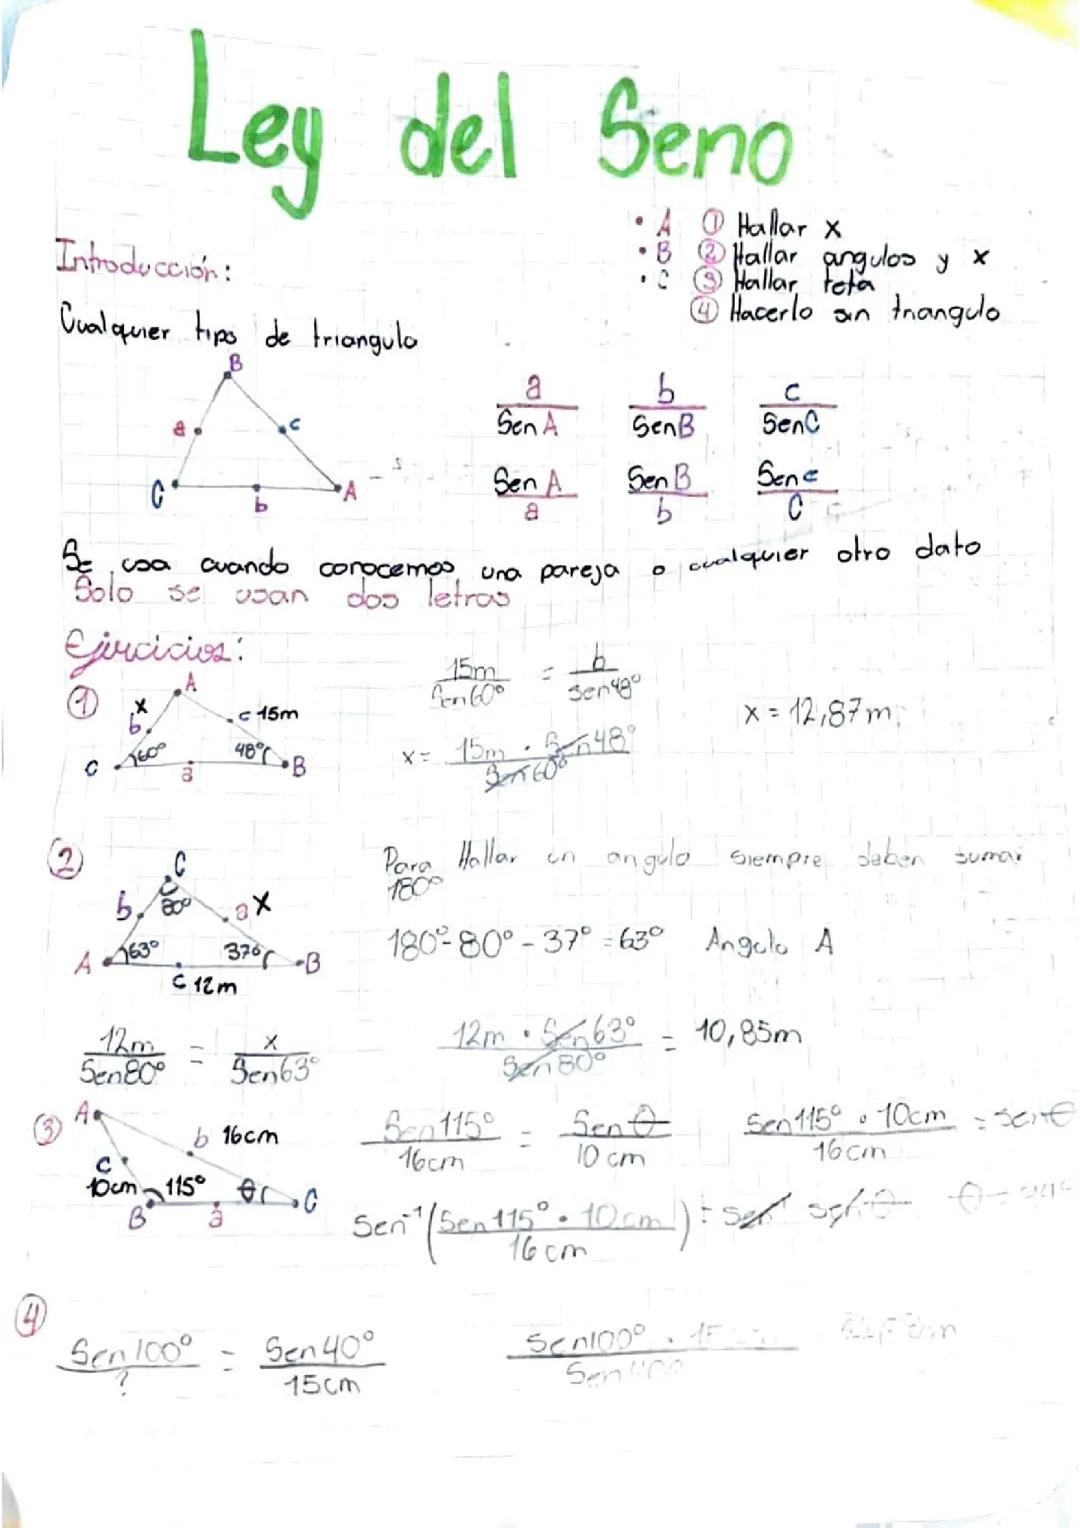 Ley del Seno
• A ① Hallar x
• B ② Hallar angulos y x
• C ③ Hallar teta
④ Hacerlo sin triangulo
Introducción:
Cualquier tipo de triangulo
B
a c
C b A
a b c
Sen A Sen B Sen C
Sen A Sen B Sen c
a b C
Se usa cuando conocemos una pareja o cualquier otro dato
Solo se usan dos letras
Ejercicios:
①
A
x
b c 15m
C 60° a 48° B
15m/Sen60° = b/sen48°
x = 15m · Sen48°/Sen60°
x = 12,87m
②
C
b 80° a x
A 63° 37° B
c 12m
Para Hallar un angulo siempre deben sumar
180°
180° - 80° - 37° = 63° Angulo A
12m/Sen80° = x/Sen63°
12m · Sen63°/Sen80° = 10,85m
③
A
b 16cm
c
10cm 115° θ C
B a
Sen115°/16cm = Sen θ/10 cm
Sen115° · 10cm/16cm = sen θ
Sen⁻¹(Sen115° · 10cm/16cm) =
④
Sen100°/? = Sen40°/15cm
Sen100° ·